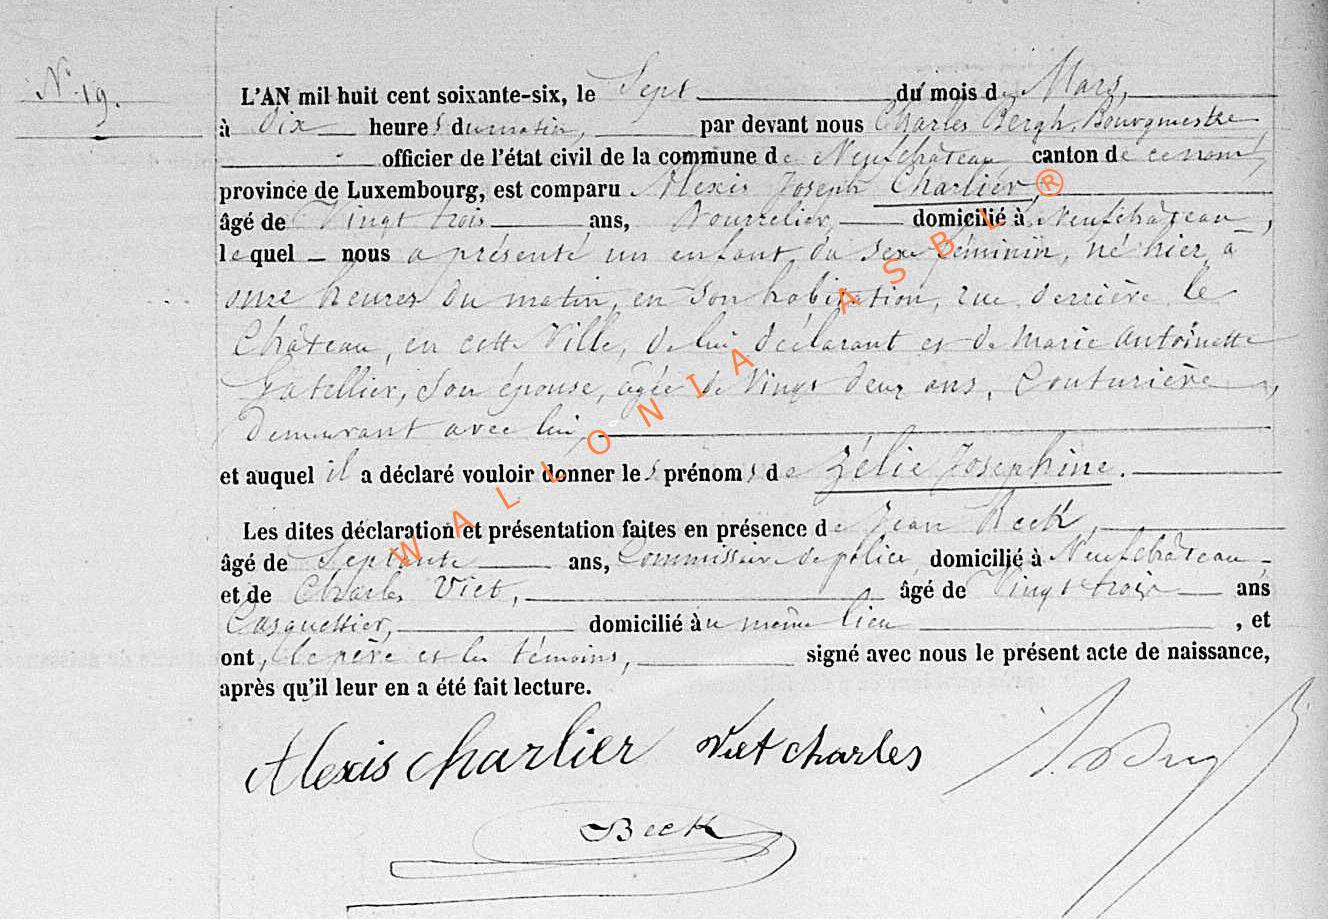 N° 19.
L'AN mil huit cent soixante-six, le Sept du mois de Mars,
à dix heures du matin, par devant nous Charles Bergh, Bourgmestre
officier de l'état civil de la commune de Neufchâteau canton de ce nom,
province de Luxembourg, est comparu Alexis Joseph Charlier,
âgé de Vingt trois ans, Bourrelier, domicilié à Neufchâteau,
lequel nous a présenté un enfant du sexe féminin, né hier à
onze heures du matin, en son habitation, rue derrière le
Château, en cette Ville, de lui déclarant et de Marie Antoinette
Gatellier, son épouse, âgée de Vingt deux ans, Couturière,
demeurant avec lui,
et auquel il a déclaré vouloir donner les prénoms de Zélie Josephine.
Les dites déclaration et présentation faites en présence de Jean Beck,
âgé de Septante ans, Commissaire de police, domicilié à Neufchâteau,
et de Charles Viet, âgé de Vingt trois ans
Casquettier, domicilié au même lieu, et
ont, le père et les témoins, signé avec nous le présent acte de naissance,
après qu'il leur en a été fait lecture.
Alexis charlier Viet charles
Beck
WALLONIA ASBL ®